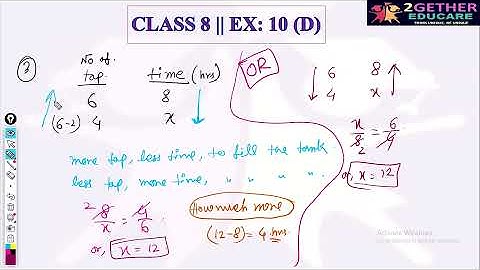 CLASS 8 || EX: 10 (D)
2GETHER
EDUCARE
THINK UNIQUE, BE UNIQUE
3
No of.
tap time (hrs)
6 8
(6-2) 4 x
more tap, less time, to fill the tank
less tap, more time, " " " "
2 8/x = 4/6
or, x = 12
How much more
(12-8) = 4 hrs.
OR
6 8
4 x
x/8 2 = 6/4
or, x = 12
Activate Windows